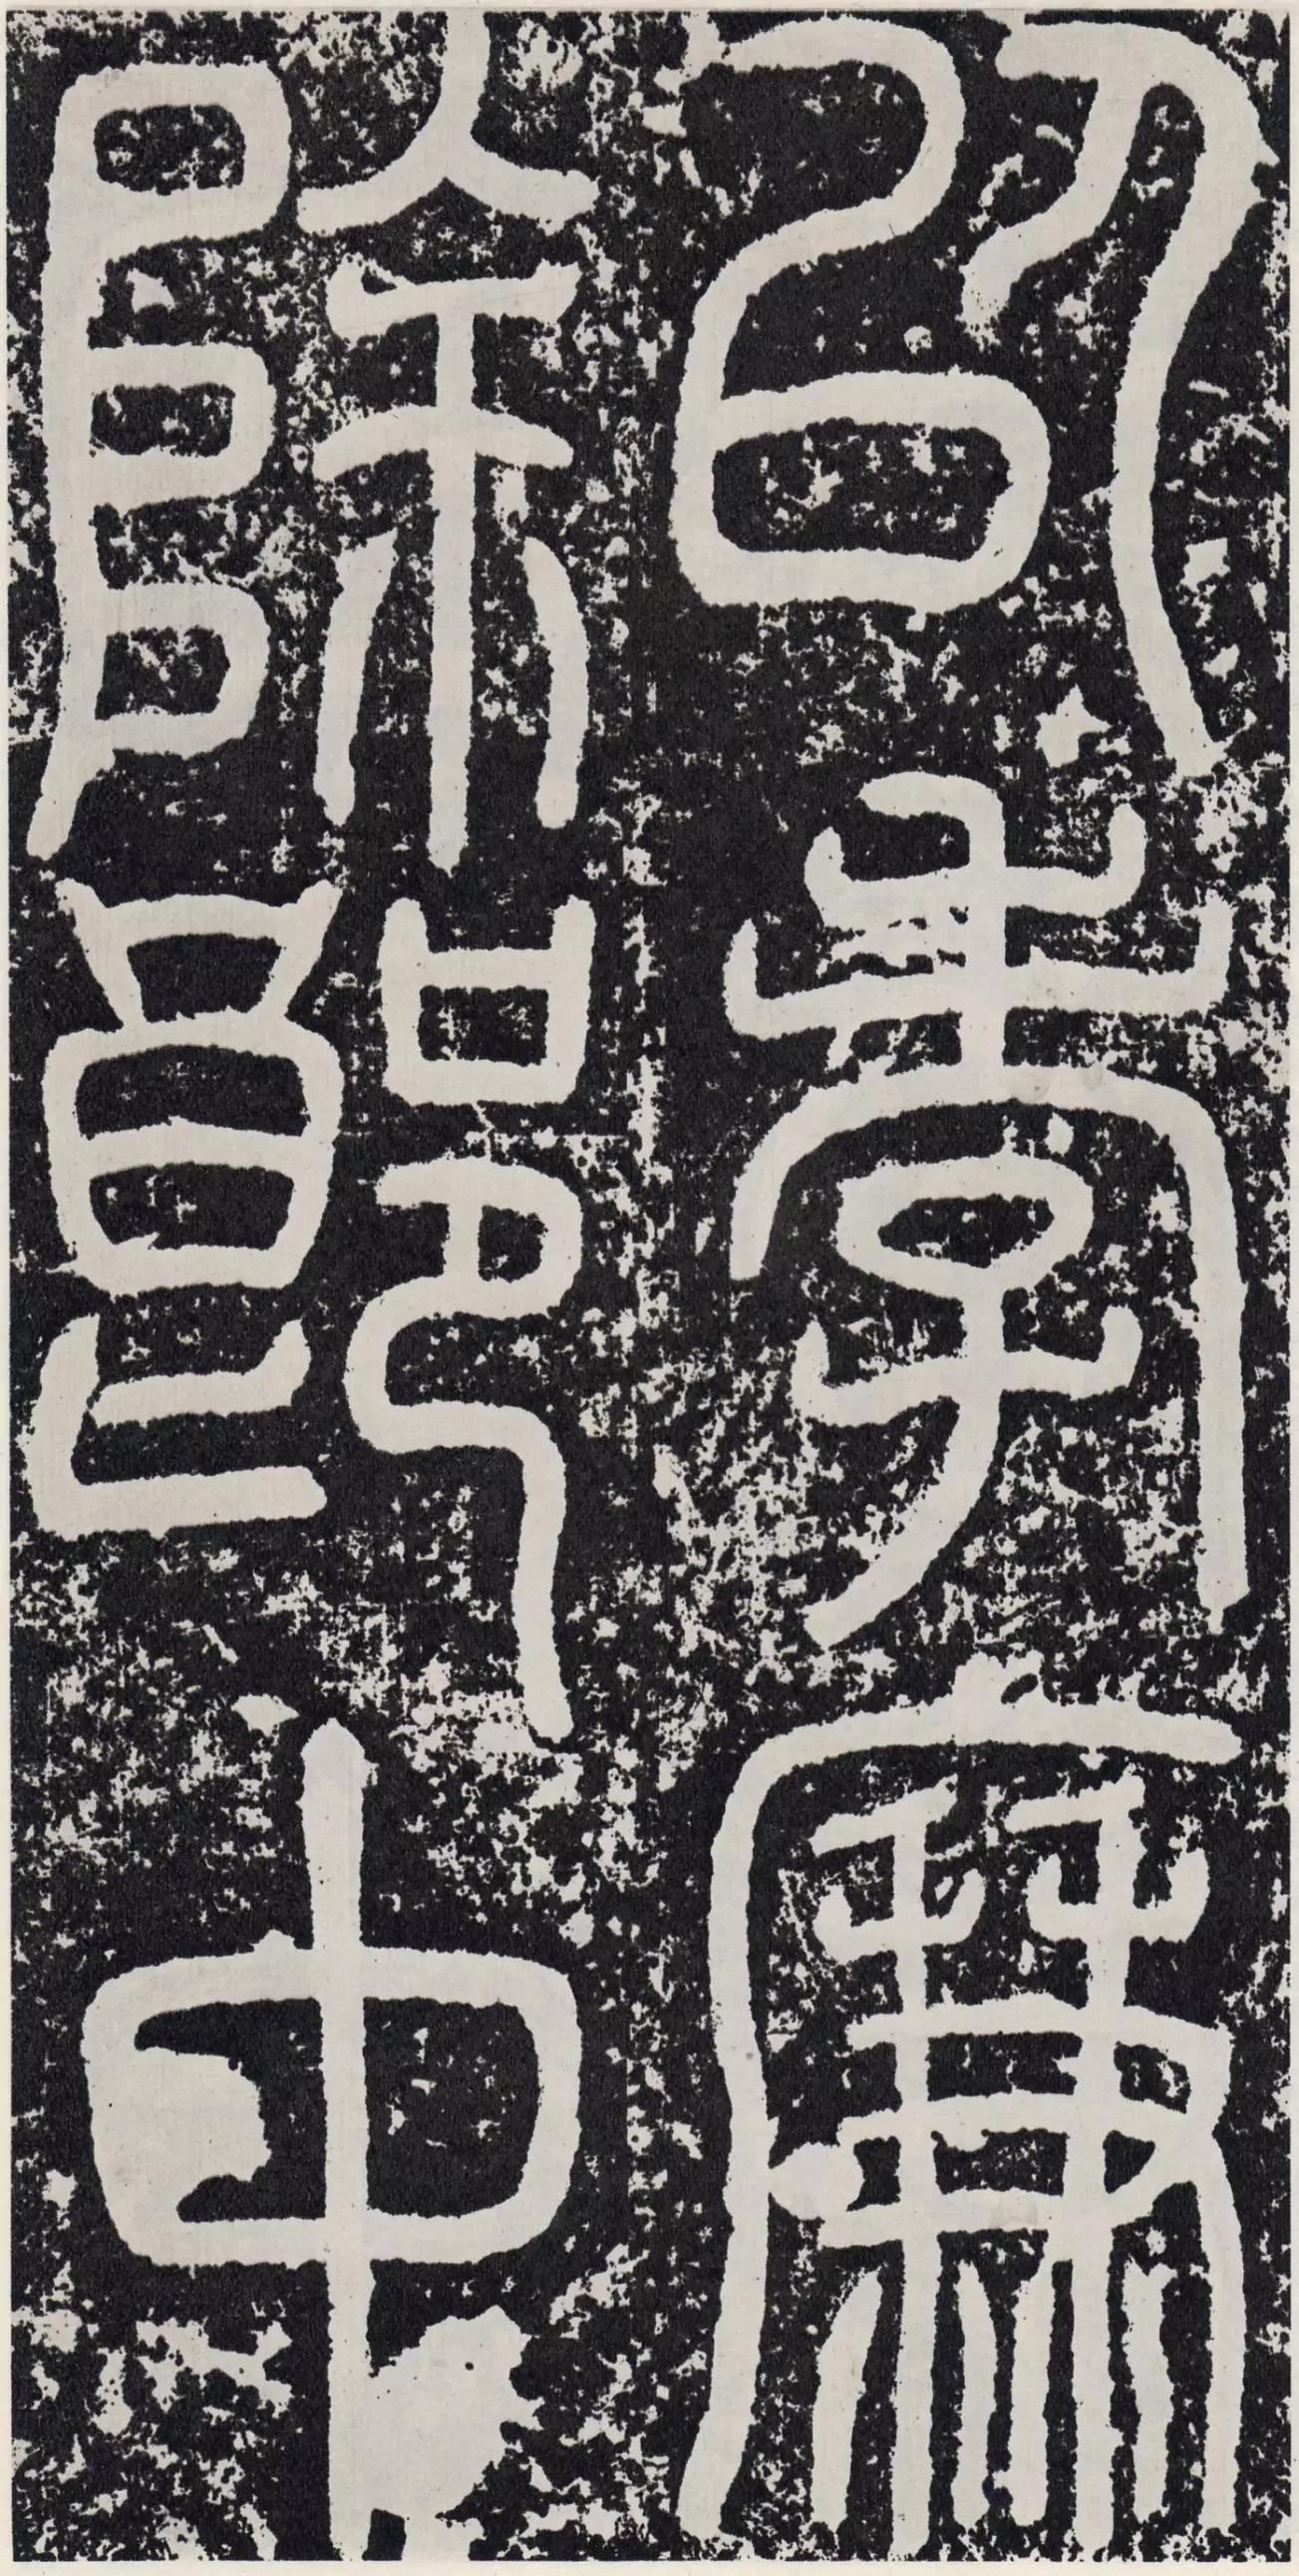 以孝廉
除郎中